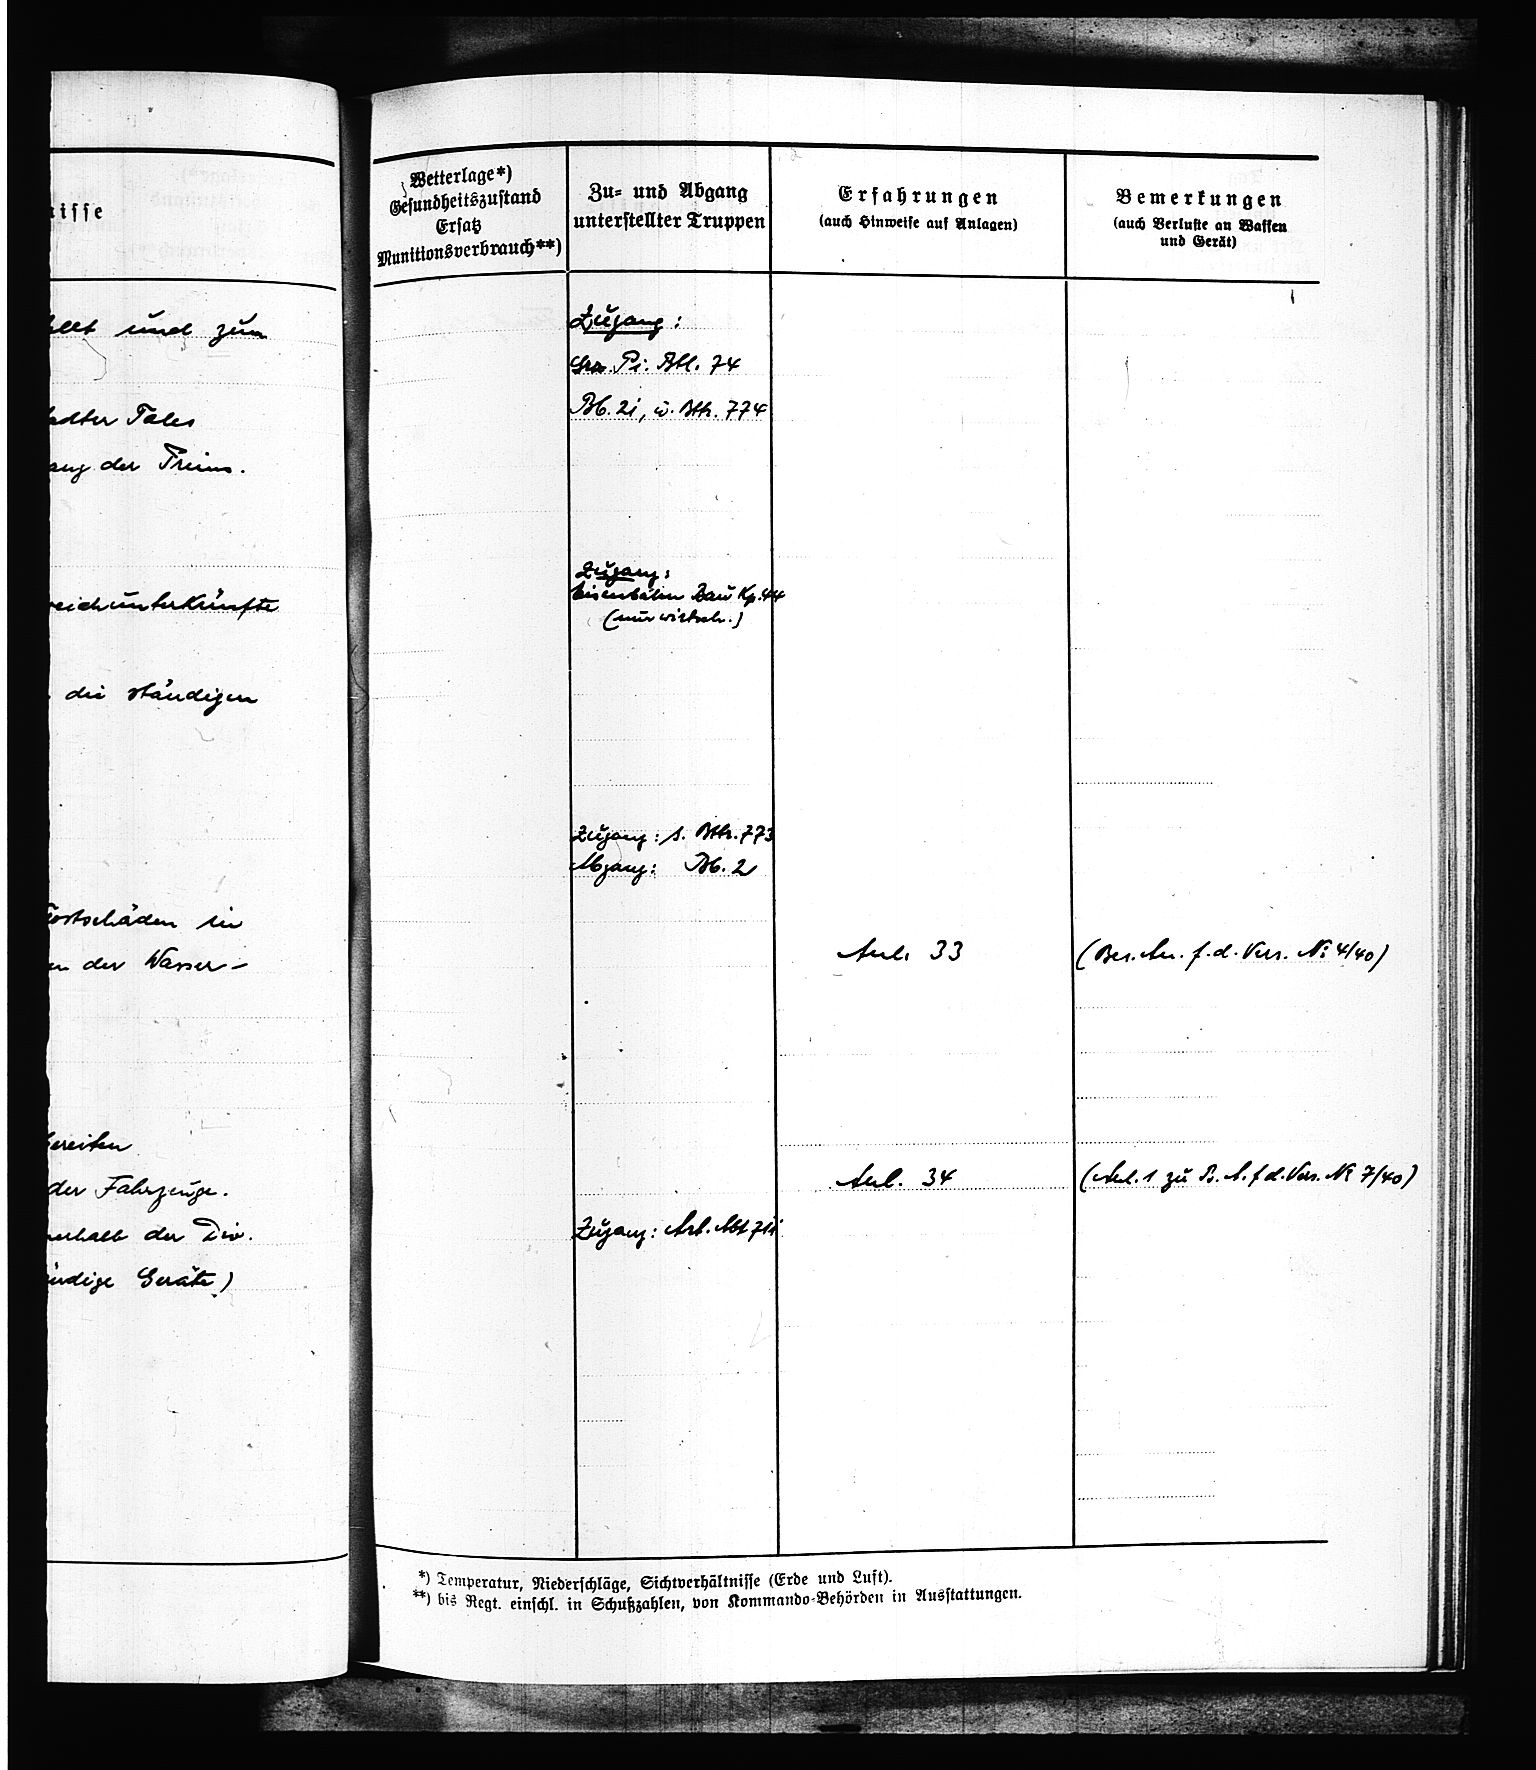 nisse
ellt und zum
ädter Tales
ang der Treins.
reichunterkünfte
die ständigen
Frostschäden in
en der Wasser-
bereiten
der Fahrzeuge.
nerhalb der Div.
ündige Geräte)
Wetterlage*)
Gesundheitszustand
Ersatz
Munitionsverbrauch**)
Zu- und Abgang
unterstellter Truppen
Zugang:
Pi. Btl. 74
Bb. 21, ü. Bttr. 774
Zugang:
Eisenbahn Bau Kp. 44
(nur wirtsch.)
Zugang: s. Bttr. 773
Abgang: Bb. 2
Zugang: Art. Abt
Erfahrungen
(auch Hinweise auf Anlagen)
Anl. 33
Anl. 34
Bemerkungen
(auch Verluste an Waffen
und Gerät)
(Bes. An. f. d. Vers. No 4/40)
(Anl. 1 zu B. A. f. d. Vers. No 7/40)
*) Temperatur, Niederschläge, Sichtverhältnisse (Erde und Luft).
**) bis Regt. einschl. in Schußzahlen, von Kommando-Behörden in Ausstattungen.